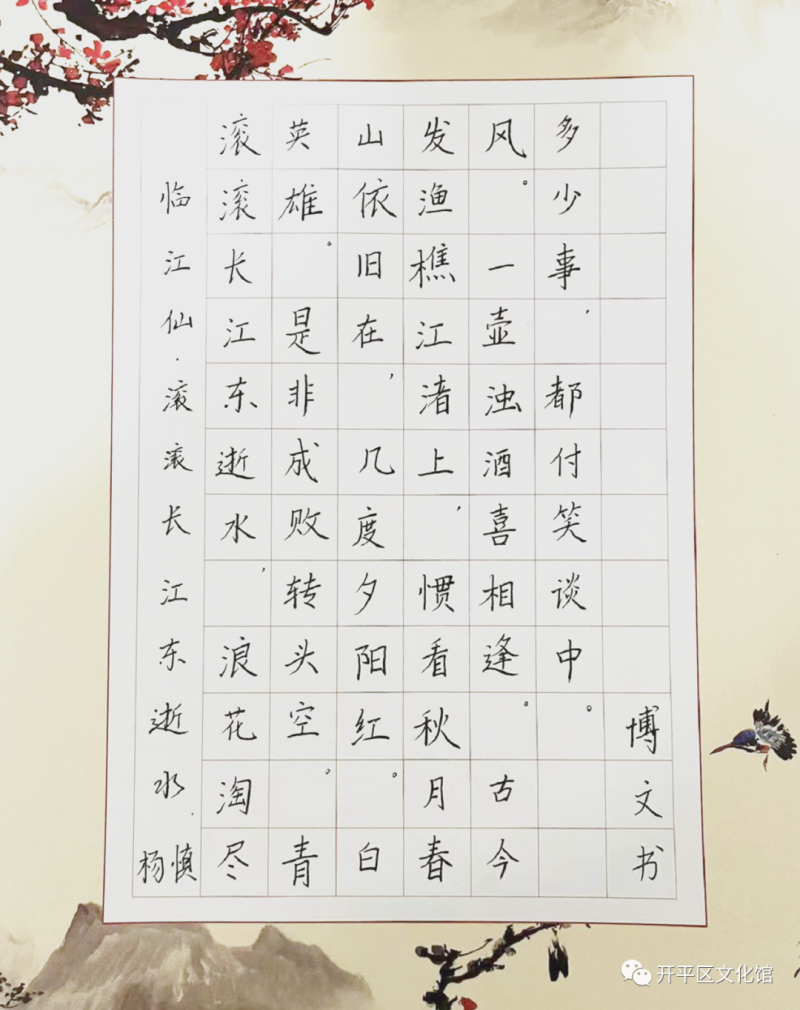 临江仙·滚滚长江东逝水·杨慎
滚滚长江东逝水，浪花淘尽
英雄。是非成败转头空。青
山依旧在，几度夕阳红。白
发渔樵江渚上，惯看秋月春
风。一壶浊酒喜相逢。古今
多少事，都付笑谈中。
博文书
开平区文化馆